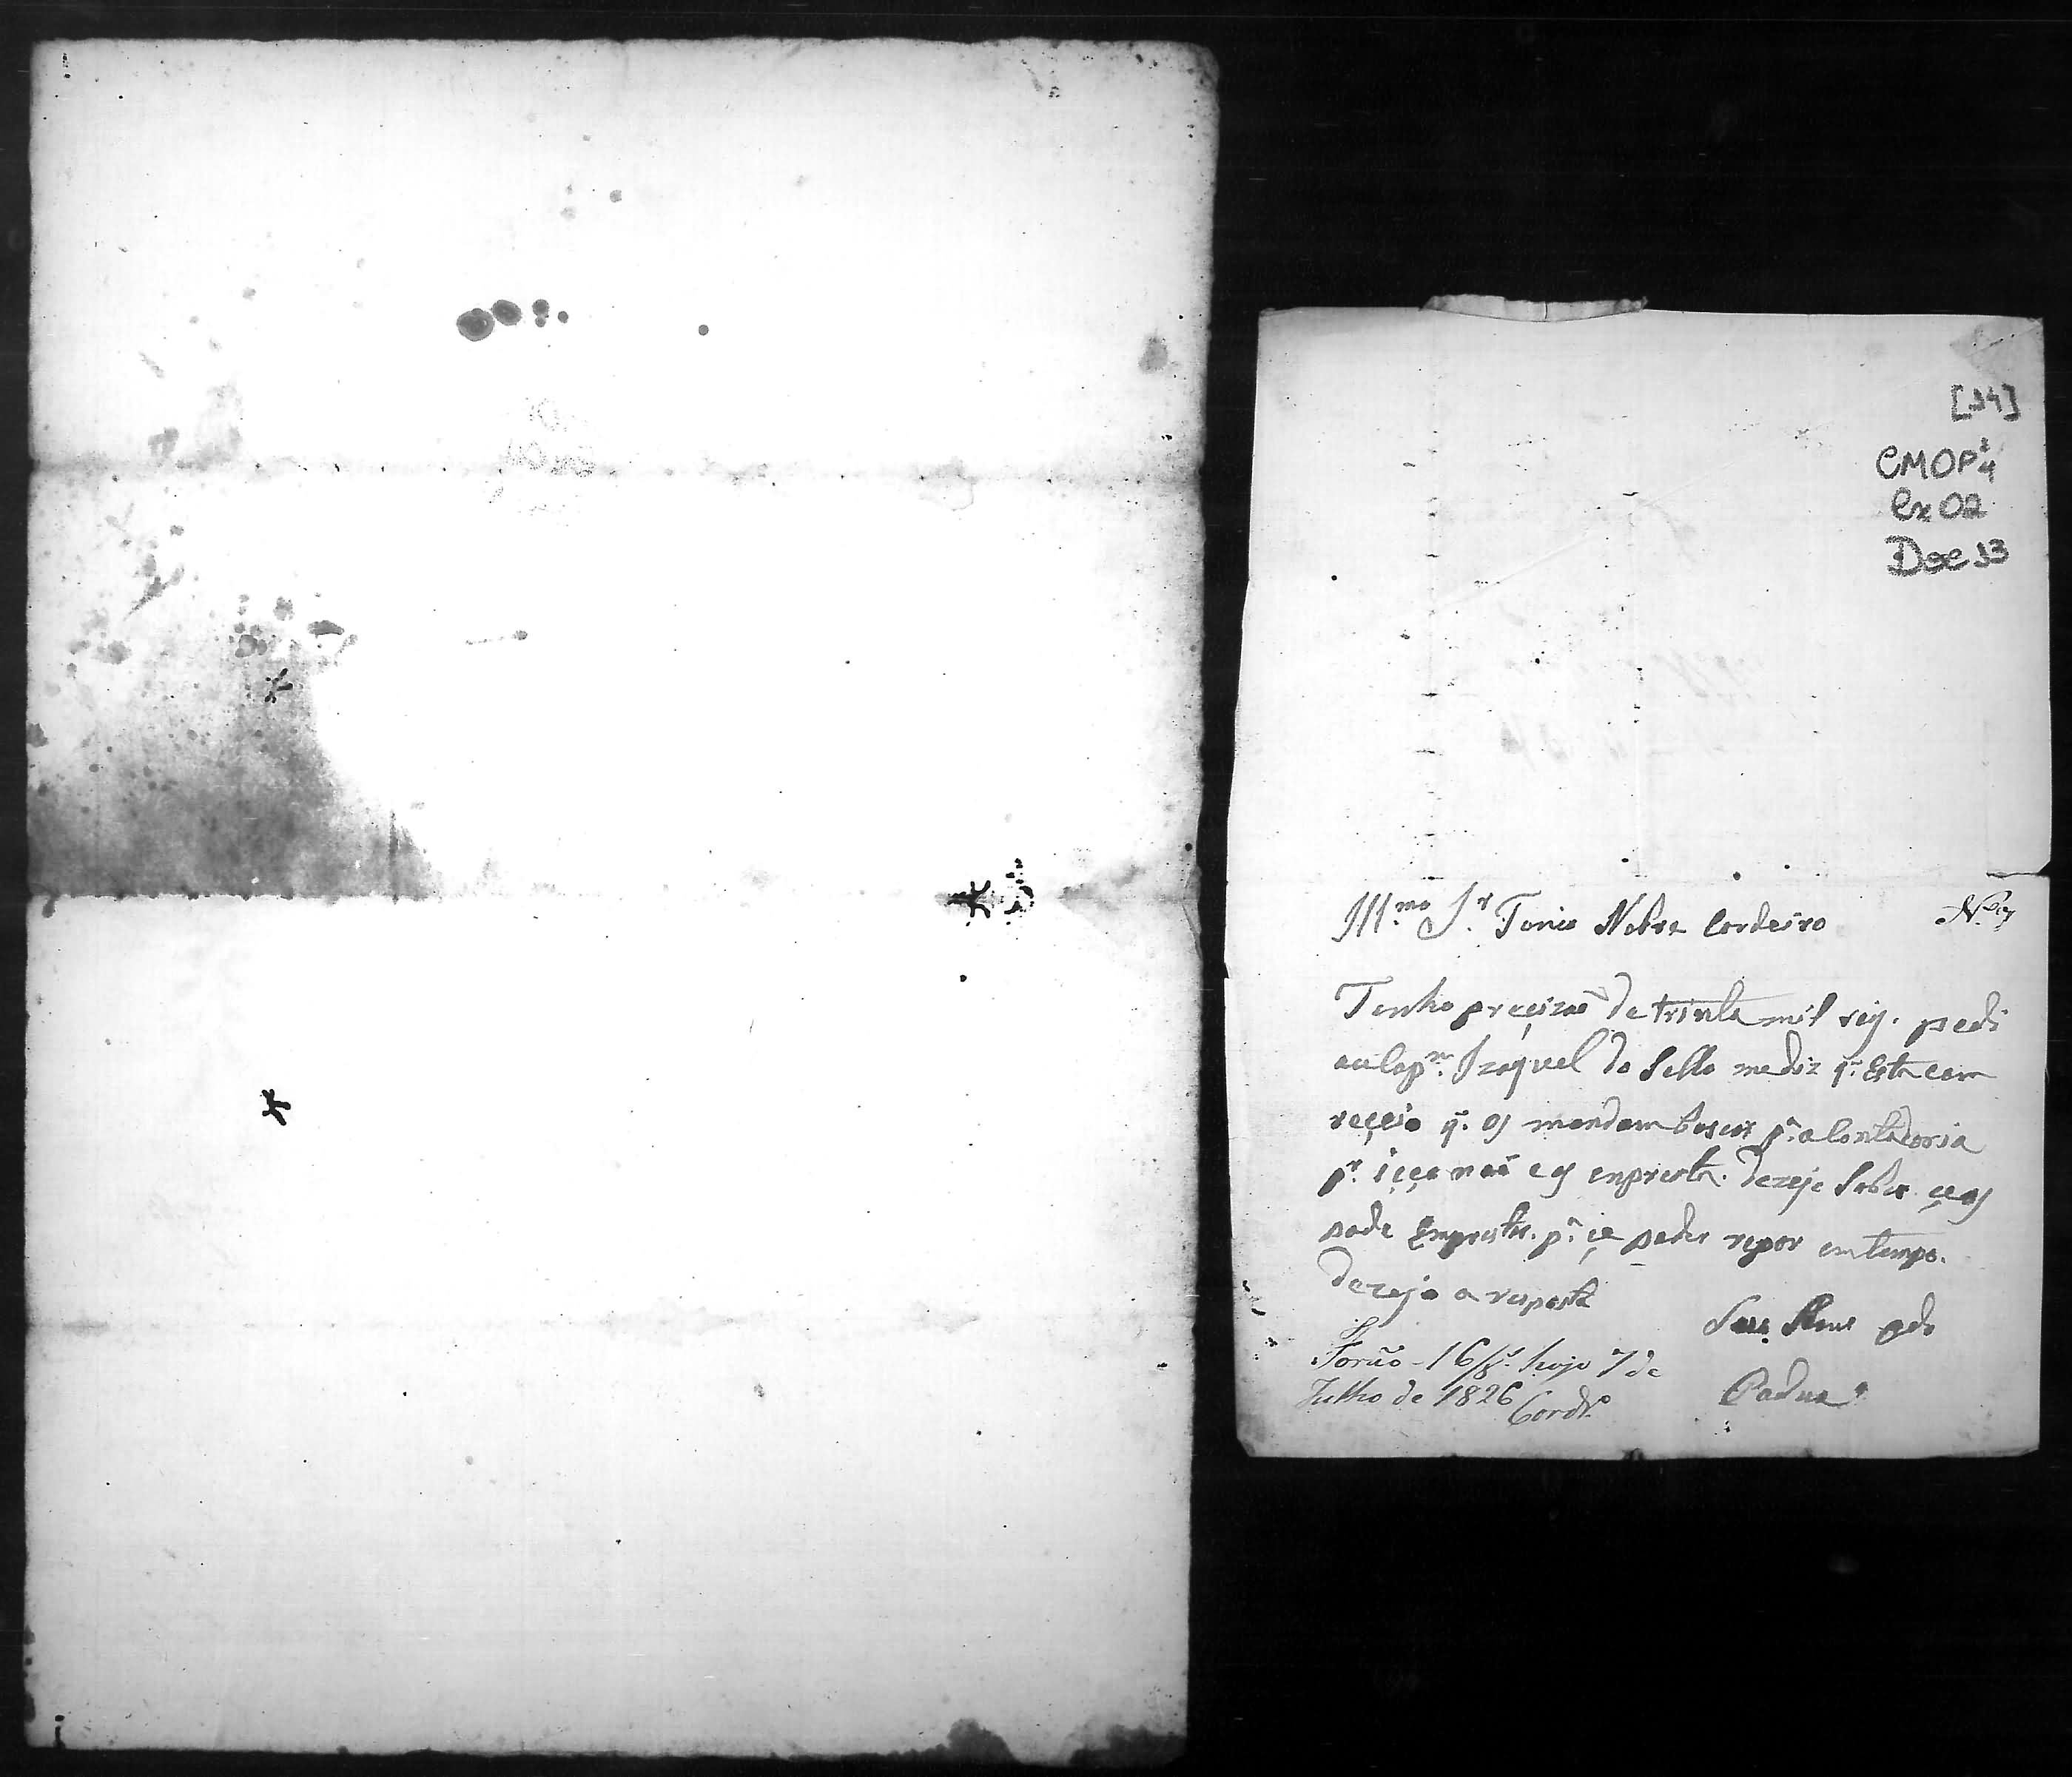 [14]
CMOP 1/4
Cx 02
Doc 13
Illmo Sr. Tonio Nobre Cordeiro
Tenho preçizaõ de trinta mil reis. pedi
ao Capm. Izaquel do Sello mediz q. Esta com
reçeio q. os mandam buscar pa. a Contadoria
pr. iço naõ os enpresta. Dezejo Saber ceos
pode Emprestar. pa. ce poder repor em tempo.
Dezejo a resposta
Foraõ - 16 hoje 7 de
Julho de 1826 Cordro.
Padua